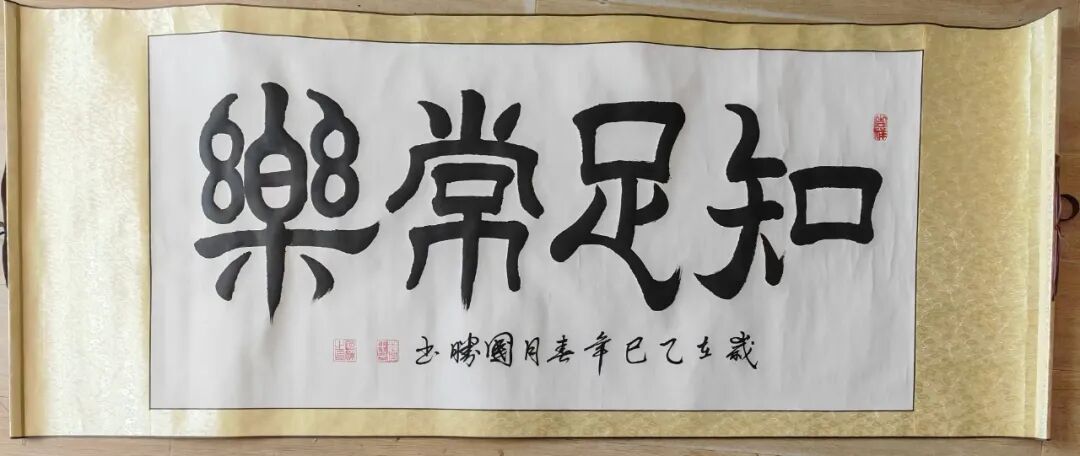 知足常樂
歲在乙巳年春月國勝书